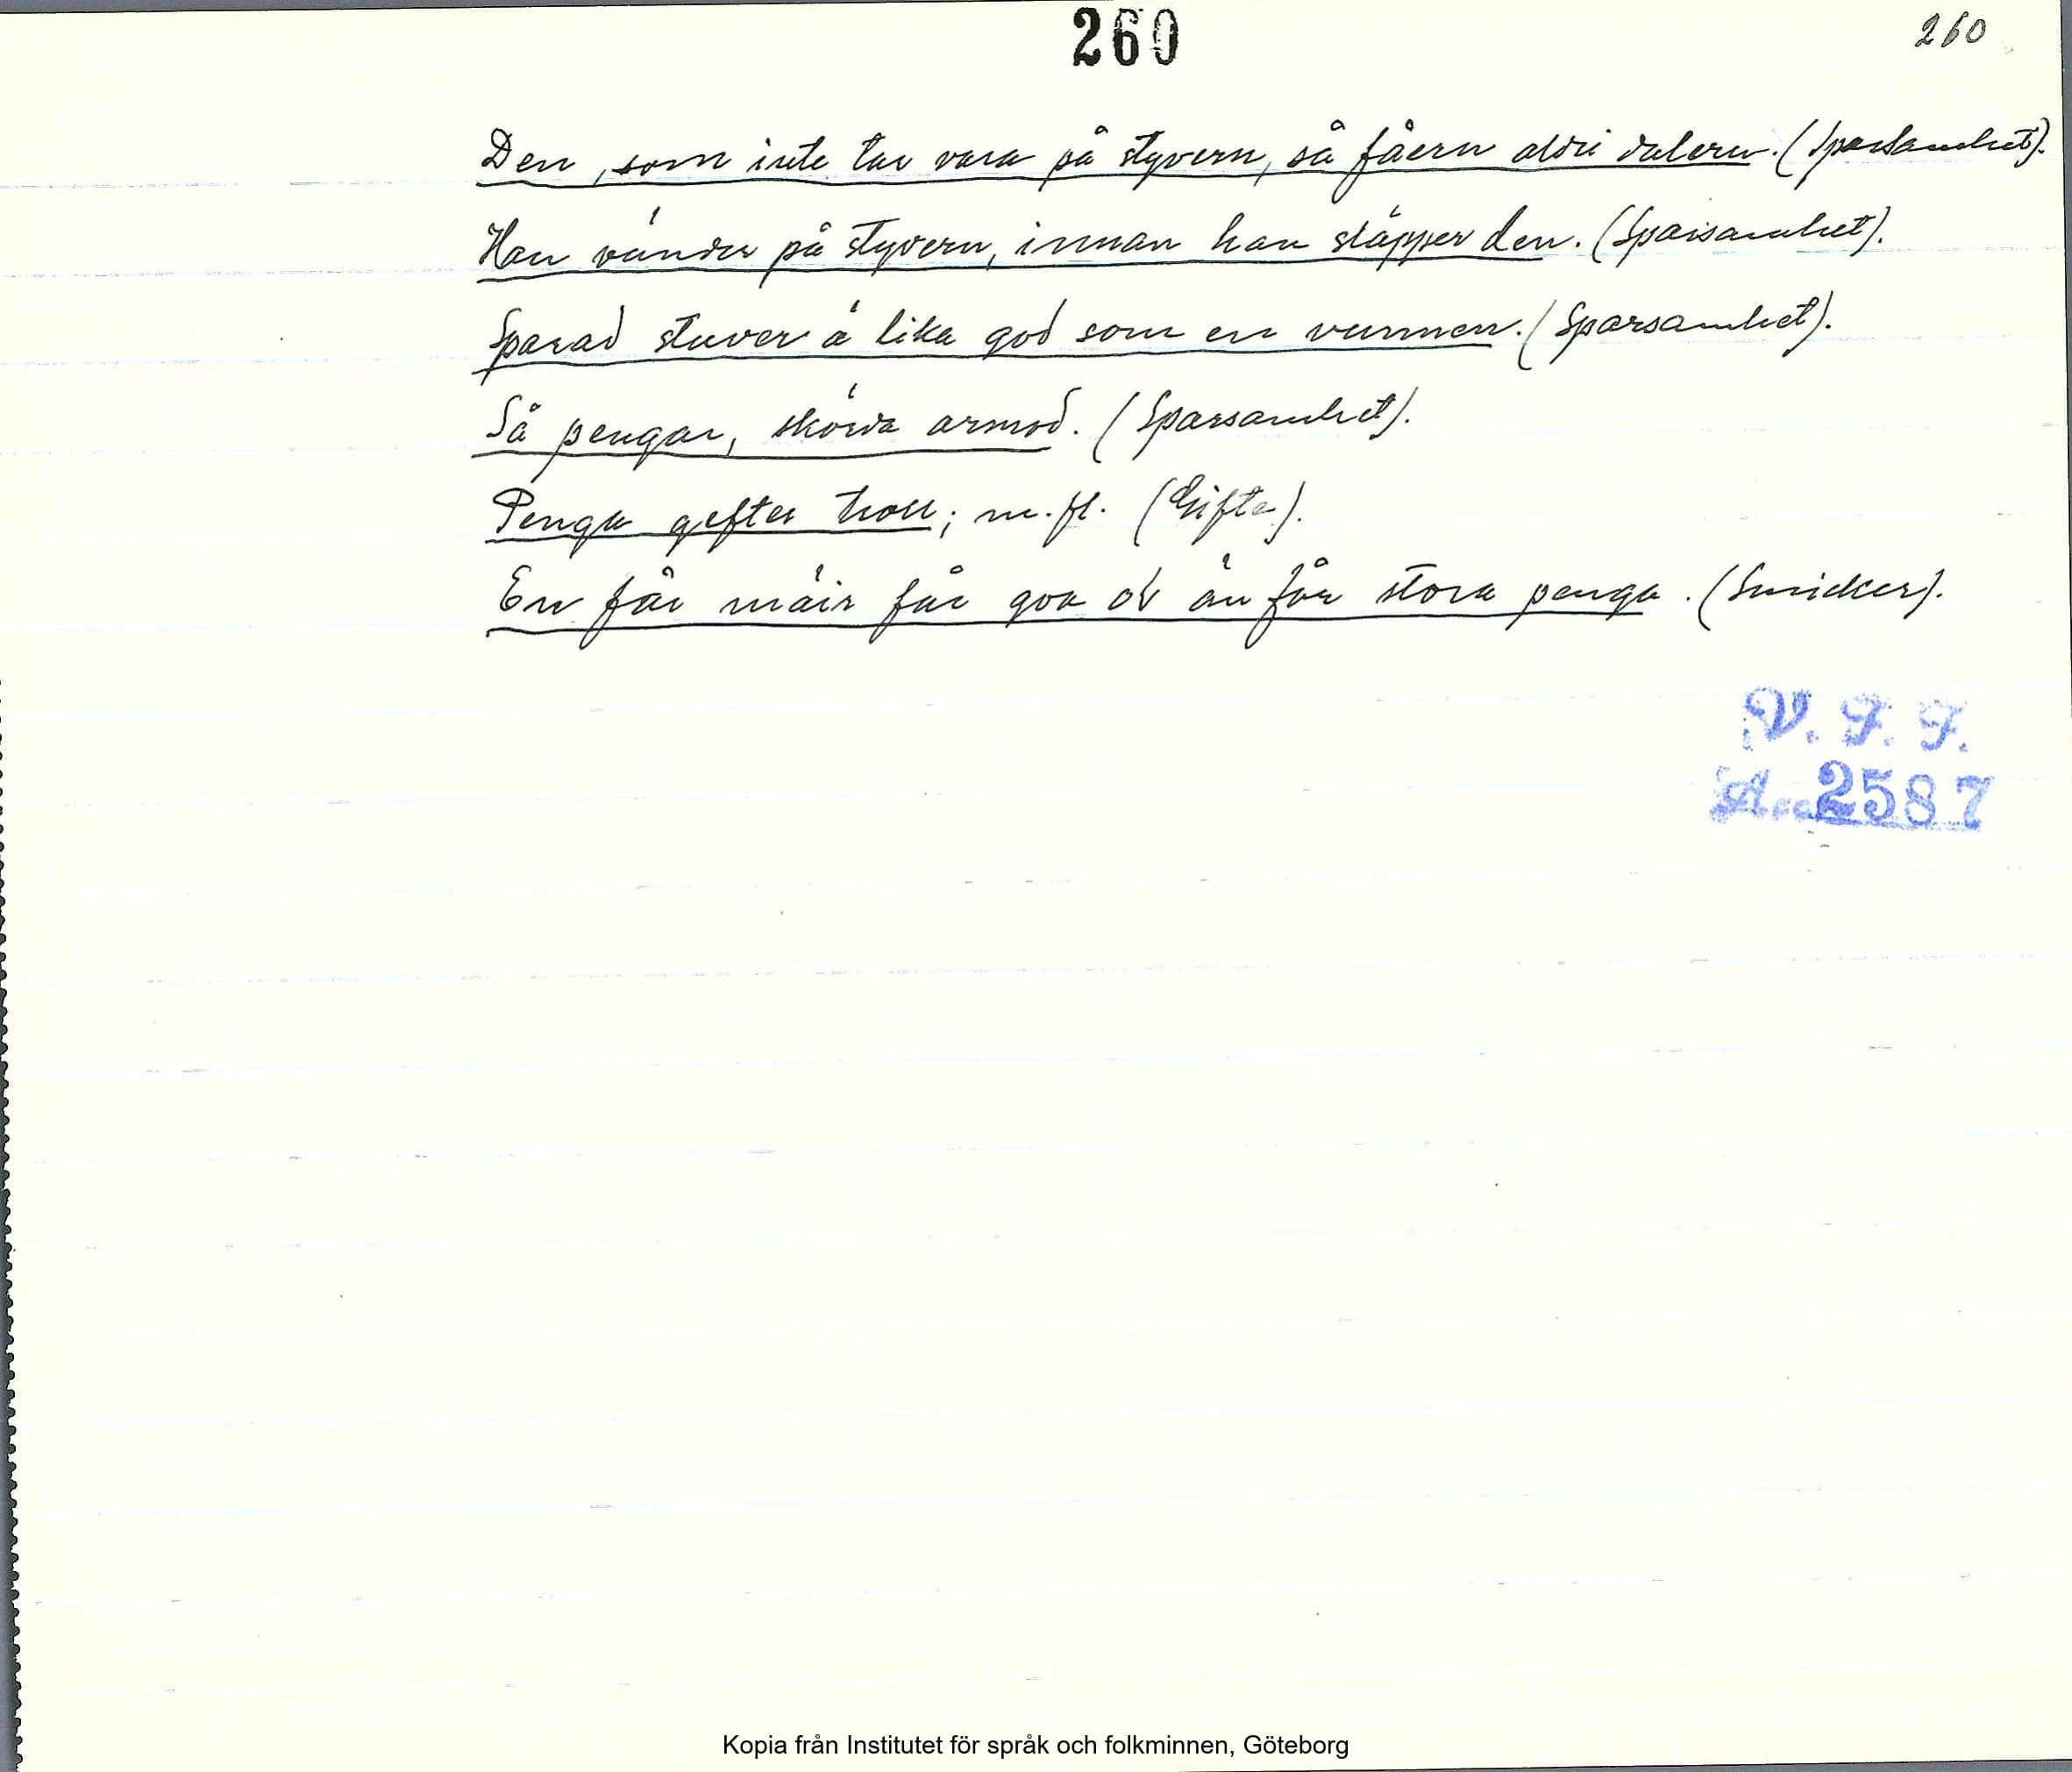 260
260
Den, som inte tar vara på styvern, så fåern aldri dalern. (Sparsamhet).
Han vänder på styvern, innan han släpper den. (Sparsamhet).
Sparad stuver ä lika god som en vunnen. (Sparsamhet).
Så pengar, skörda armod. (Sparsamhet).
Penga gefter troll; m.fl. (Gifta).
En får mäir får goa ol än får stora penga. (Smicker).
V. F. F.
Acc 2587
Kopia från Institutet för språk och folkminnen, Göteborg